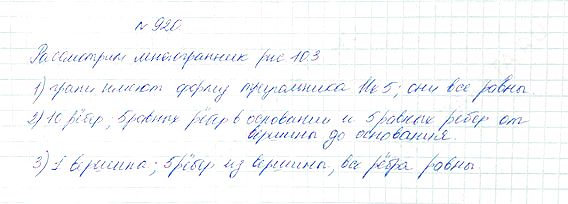 № 920.
Рассмотрим многогранник рис 103
1) грани имеют форму треугольника Их 5; они все равны.
2) 10 рёбер, 5 равных рёбер в основании и 5 равных рёбер от
вершины до основания.
3) 1 вершина; 5 рёбер из вершины, все рёбра равны